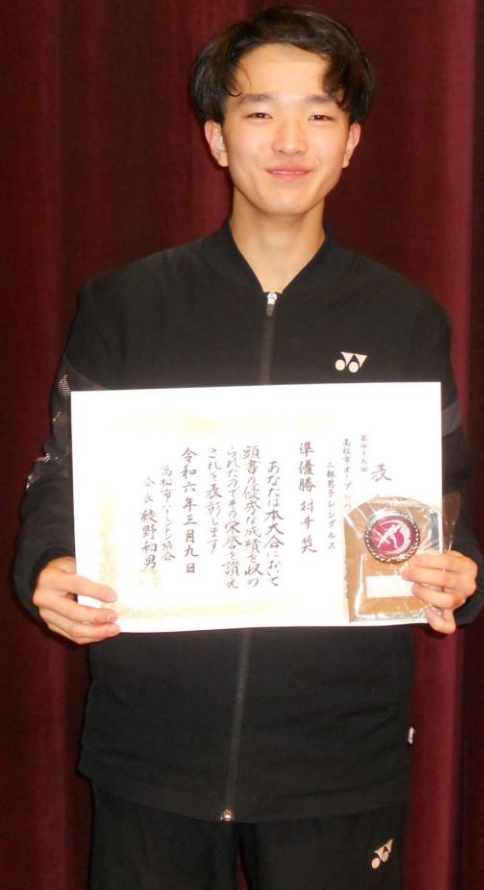 表
第四十九回
高松市オープン
二部男子シングルス
準優勝 村井 奨
あなたは本大会において
頭書の優秀な成績を収め
られたのでその栄誉を讃え
これを表彰します
令和六年三月九日
高松市バドミントン協会
会長 綾野和男